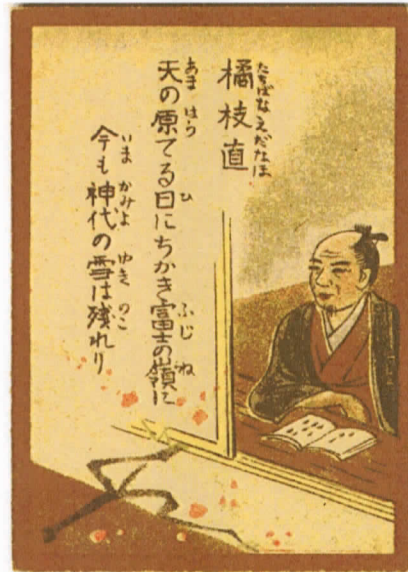 橘枝直
たちばなえだなほ
天の原てる日にちかき富士の嶺に
あま はら ひ ふじ ね
今も神代の雪は残れり
いま かみよ ゆき のこ